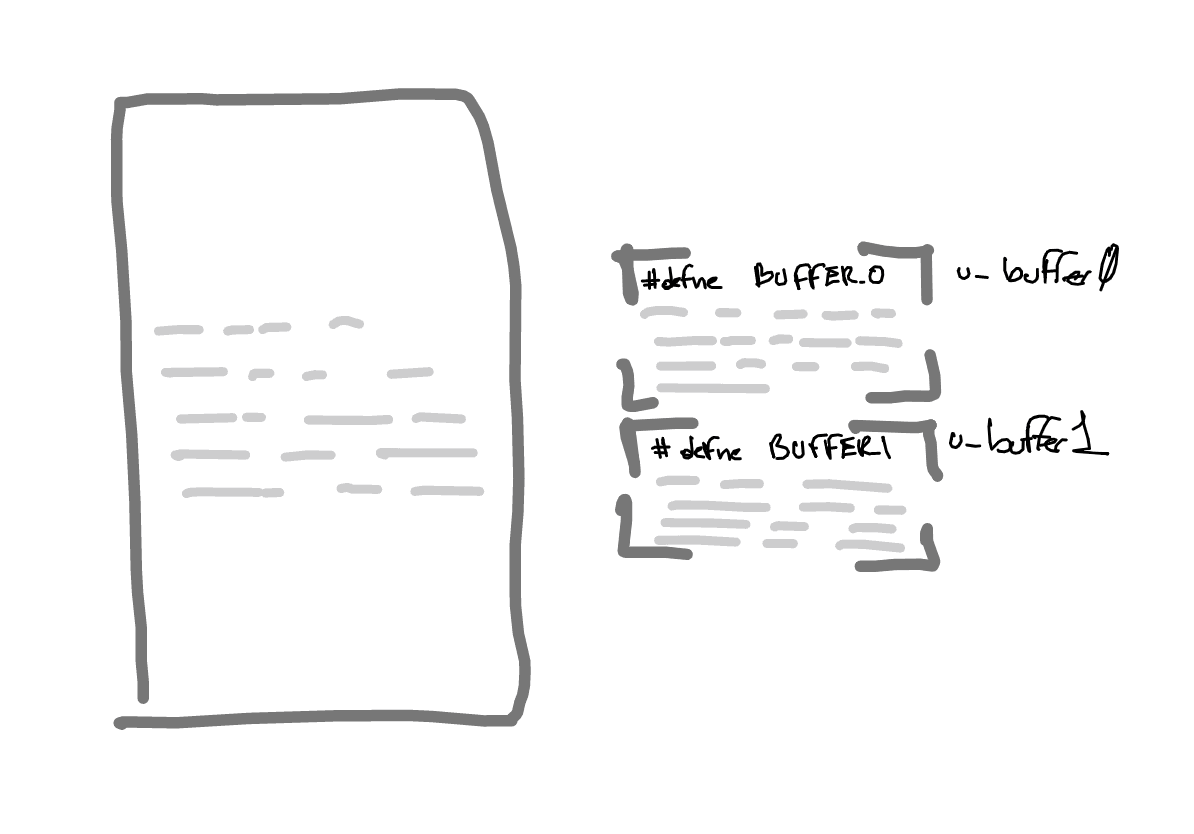 #define BUFFER_0 u_buffer0
#define BUFFER1 u_buffer1